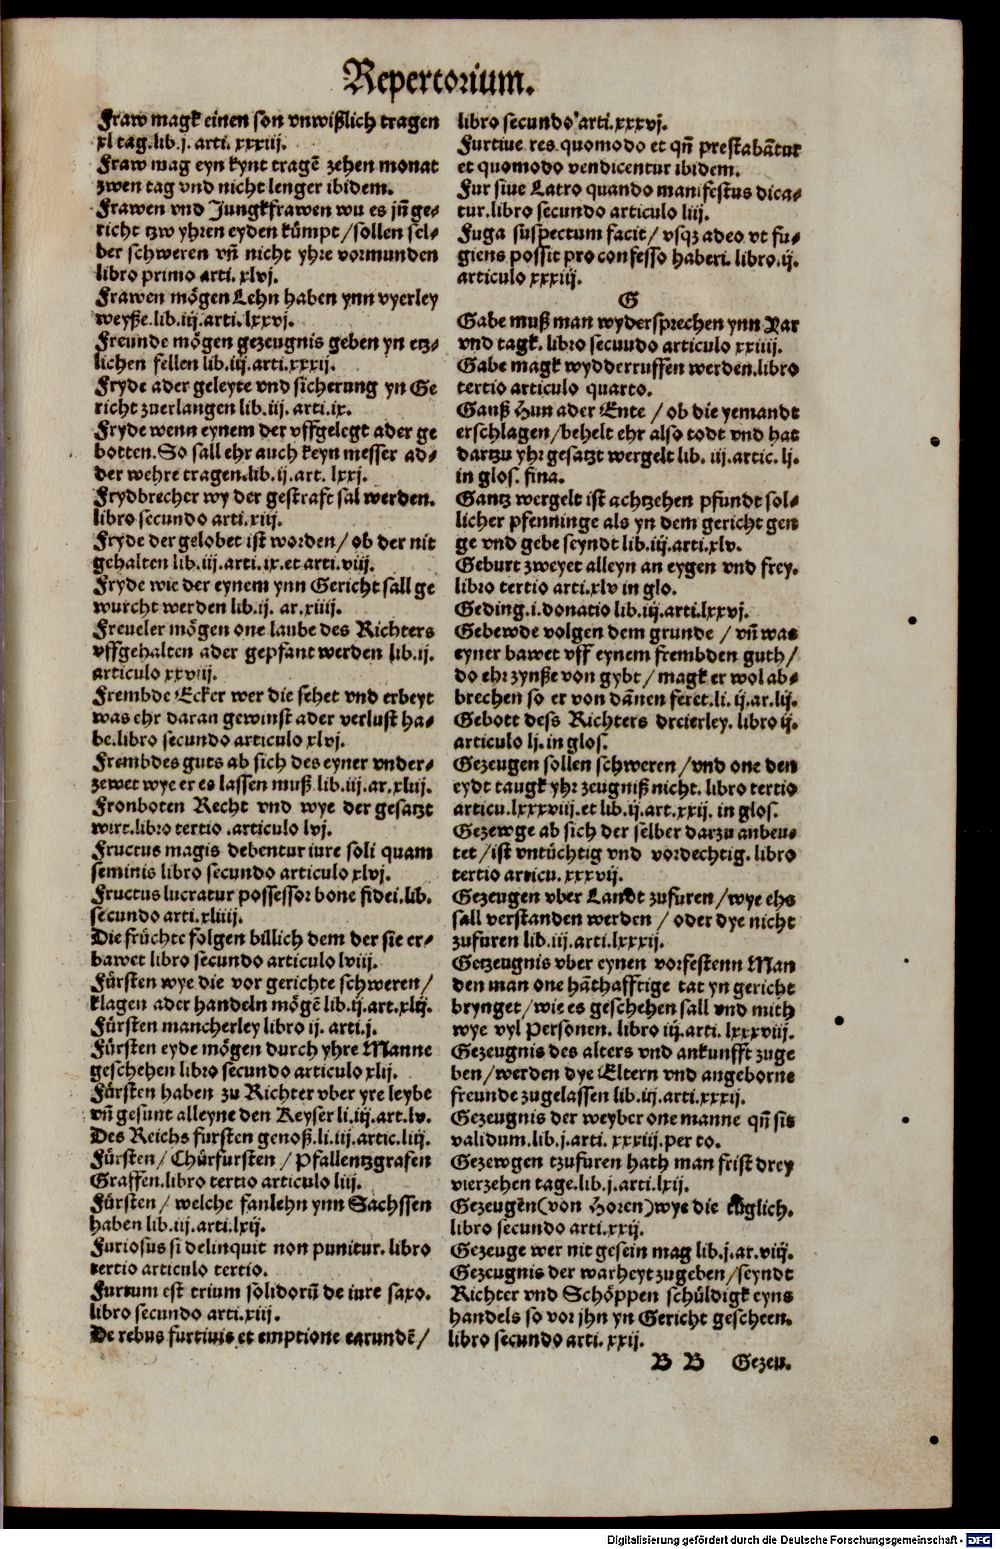 Repertorium.
Fraw magk einen son vnwißlich tragen
xl tag.lib.j. arti. xxxiij.
Fraw mag eyn kynt tragē zehen monat
zwen tag vnd nicht lenger ibidem.
Frawen vnd Jungkfrawen wu es jn̄ ge⸗
richt tzw yhren eyden kümpt/sollen sel⸗
ber schweren vn̄ nicht yhre vormunden
libro primo arti. xlvj.
Frawen mögen Lehn haben ynn vyerley
weyße.lib.iij.arti.lxxvj.
Freunde mögen gezeugnis geben yn etz⸗
lichen fellen lib.iij.arti.xxxij.
Fryde ader geleyte vnd sicherung yn Ge
richt zuerlangen lib.iij. arti.ix.
Fryde wenn eynem der vffgelegt ader ge
botten.So sall ehr auch keyn messer ad⸗
der wehre tragen.lib.ij.art. lxxj.
Frydbrecher wy der gestraft sal werden.
libro secundo arti.xiij.
Fryde der gelobet ist worden/ ob der nit
gehalten lib.iij.arti.ix.et arti.viij.
Fryde wie der eynem ynn Gericht sall ge
wurcht werden lib.ij. ar.xiiij.
Freueler mögen one laube des Richters
vffgehalten ader gepfant werden lib.ij.
articulo xxviij.
Frembde Ecker wer die sehet vnd erbeyt
was ehr daran gewinst ader verlust ha⸗
be.libro secundo articulo xlvj.
Frembdes guts ab sich des eyner vnder⸗
zewet wye er es lassen muß.lib.iij.ar.xliij.
Fronboten Recht vnd wye der gesatzt
wirt.libro tertio .articulo lvj.
Fructus magis debentur iure soli quam
seminis libro secundo articulo xlvj.
Fructus lucratur possessor bone fidei.lib.
secundo arti.xliiij.
Die früchte folgen billich dem der sie er⸗
bawet libro secundo articulo lviij.
Fürsten wye die vor gerichte schweren/
klagen ader handeln mögē lib.ij.art.xlij.
Fürsten mancherley libro ij. arti.j.
Fürsten eyde mögen durch yhre Manne
geschehen libro secundo articulo xlij.
Fürsten haben zu Richter vber yre leybe
vn̄ gesunt alleyne den Keyser li.iij.art.lv.
Des Reichs fursten genoß.li.iij.artic.liij.
Fürsten/ Chürfursten /Pfallentzgrafen
Graffen.libro tertio articulo liij.
Fürsten/ welche fanlehn ynn Sachssen
haben lib.iij.arti.lxij.
Furiosus si delinquit non punitur. libro
tertio articulo tertio.
Furtum est trium solidorū de iure saxo.
libro secundo arti.xiij.
De rebus furtiuis et emptione earundē/
libro secundo arti.xxxvj.
Furtiue res quomodo et qn̄ prestabātur
et quomodo vendicentur ibidem.
Fur siue Latro quando manifestus dica⸗
tur.libro secundo articulo liij.
Fuga suspectum facit/ vsqz adeo vt fu⸗
giens possit pro confesso haberi. libro.ij.
articulo xxxiij.
G
Gabe muß man wydersprechen ynn Jar
vnd tagk. libro secundo articulo xxiiij.
Gabe magk wydderruffen werden.libro
tertio articulo quarto.
Ganß Hun ader Ente / ob die yemandt
erschlagen/behelt ehr also todt vnd hat
dartzu yhr gesatzt wergelt lib. iij.artic. lj.
in glos. fina.
Gantz wergelt ist achtzehen pfundt sol⸗
licher pfenninge als yn dem gericht gen
ge vnd gebe seyndt lib.iij.arti.xlv.
Geburt zweyet alleyn an eygen vnd frey.
libro tertio arti.xlv in glo.
Geding.i.donatio lib.iij.arti.lxxvj.
Gebewde volgen dem grunde / vn̄ was
eyner bawet vff eynem frembden guth/
do ehr zynße von gybt / magk er wol ab⸗
brechen so er von dānen feret.li. ij.ar.lij.
Gebott dess Richters dreierley. libro ij.
articulo lj.in glos.
Gezeugen sollen schweren /vnd one den
eydt taugk yhr zeugniß nicht. libro tertio
articu.lxxxviij.et lib.ij.art.xxij. in glos.
Gezewge ab sich der selber darzu anbeu⸗
tet /ist vntüchtig vnd vordechtig. libro
tertio articu.xxxvij.
Gezeugen vber Landt zufuren/wye ehs
sall verstanden werden / oder dye nicht
zufuren lib.iij.arti.lxxxij.
Getzeugnis vber eynen vorfestenn Man
den man one hāthafftige tat yn gericht
brynget/wie es geschehen sall vnd mith
wye vyl Personen. libro iij.arti. lxxxviij.
Gezeugnis des alters vnd ankunfft zuge
ben/werden dye Eltern vnd angeborne
freunde zugelassen lib.iij.arti.xxxij.
Gezeugnis der weyber one manne qn̄ sit
validum.lib.j.arti. xxxiij.per to.
Gezewgen tzufuren hath man frist drey
vierzehen tage.lib.j.arti.lxij.
Gezeugēn(von Horen)wye die tüglich.
libro secundo arti.xxij.
Gezeuge wer nit gesein mag lib.j.ar.viij.
Gezeugnis der warheyt zugeben/seyndt
Richter vnd Schöppen schüldigk eyns
handels so vor jhn yn Gericht gescheen.
libro secundo arti. xxij.
B B Gezeu.
Digitalisierung gefördert durch die Deutsche Forschungsgemeinschaft - DFG